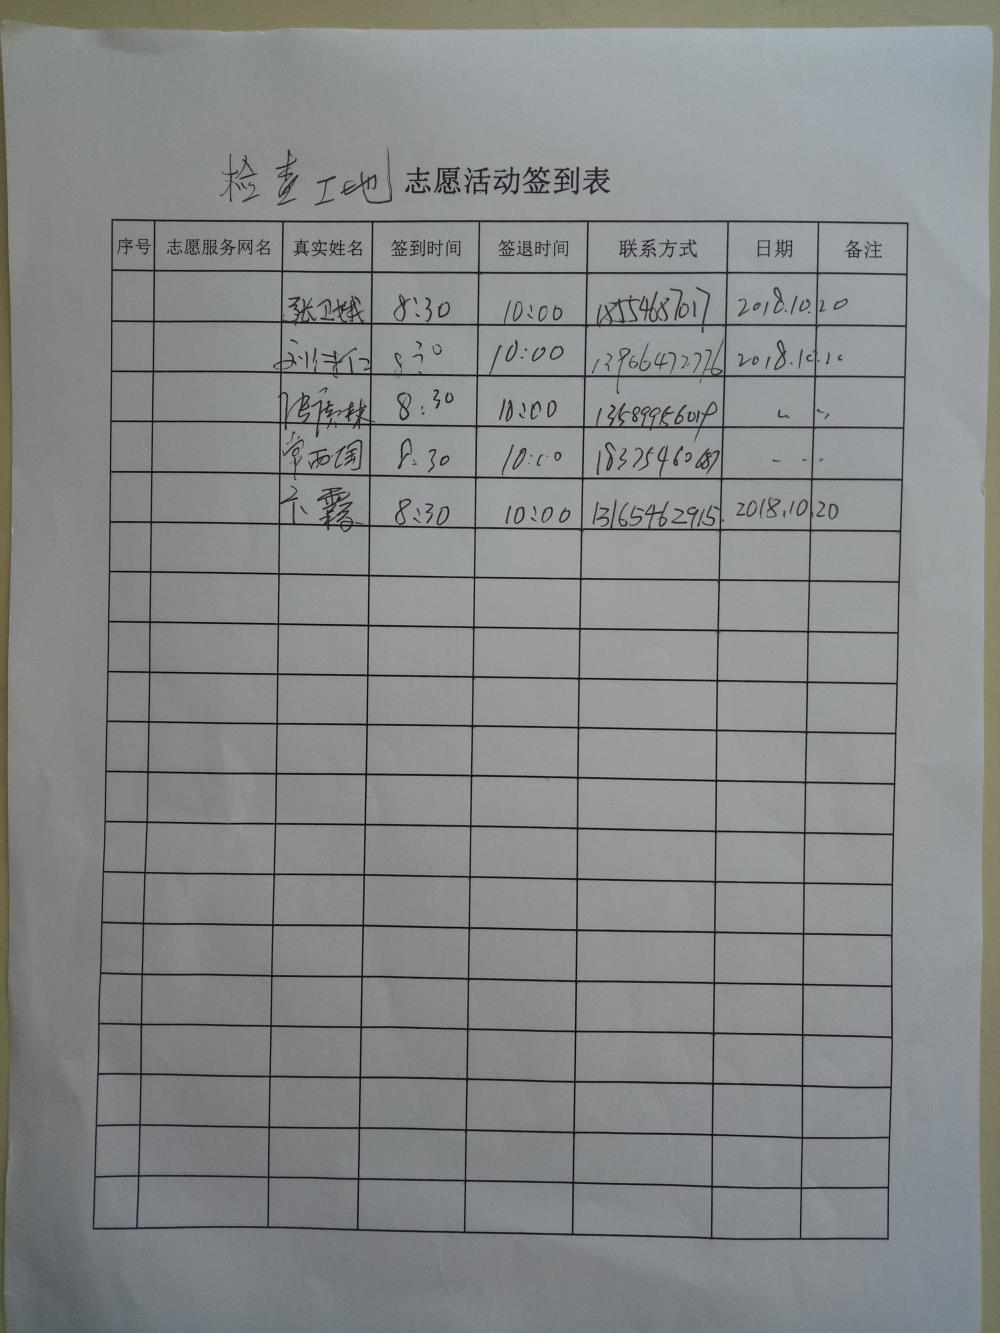 检查工地 志愿活动签到表
序号 志愿服务网名 真实姓名 签到时间 签退时间 联系方式 日期 备注
张卫娥 8:30 10:00 18554687017 2018.10.20
8:30 10:00 13966472776 2018.10.20
8:30 10:00
常西国 8:30 10:00 2018.10.20
卞霞 8:30 10:00 13165462915 2018.10.20